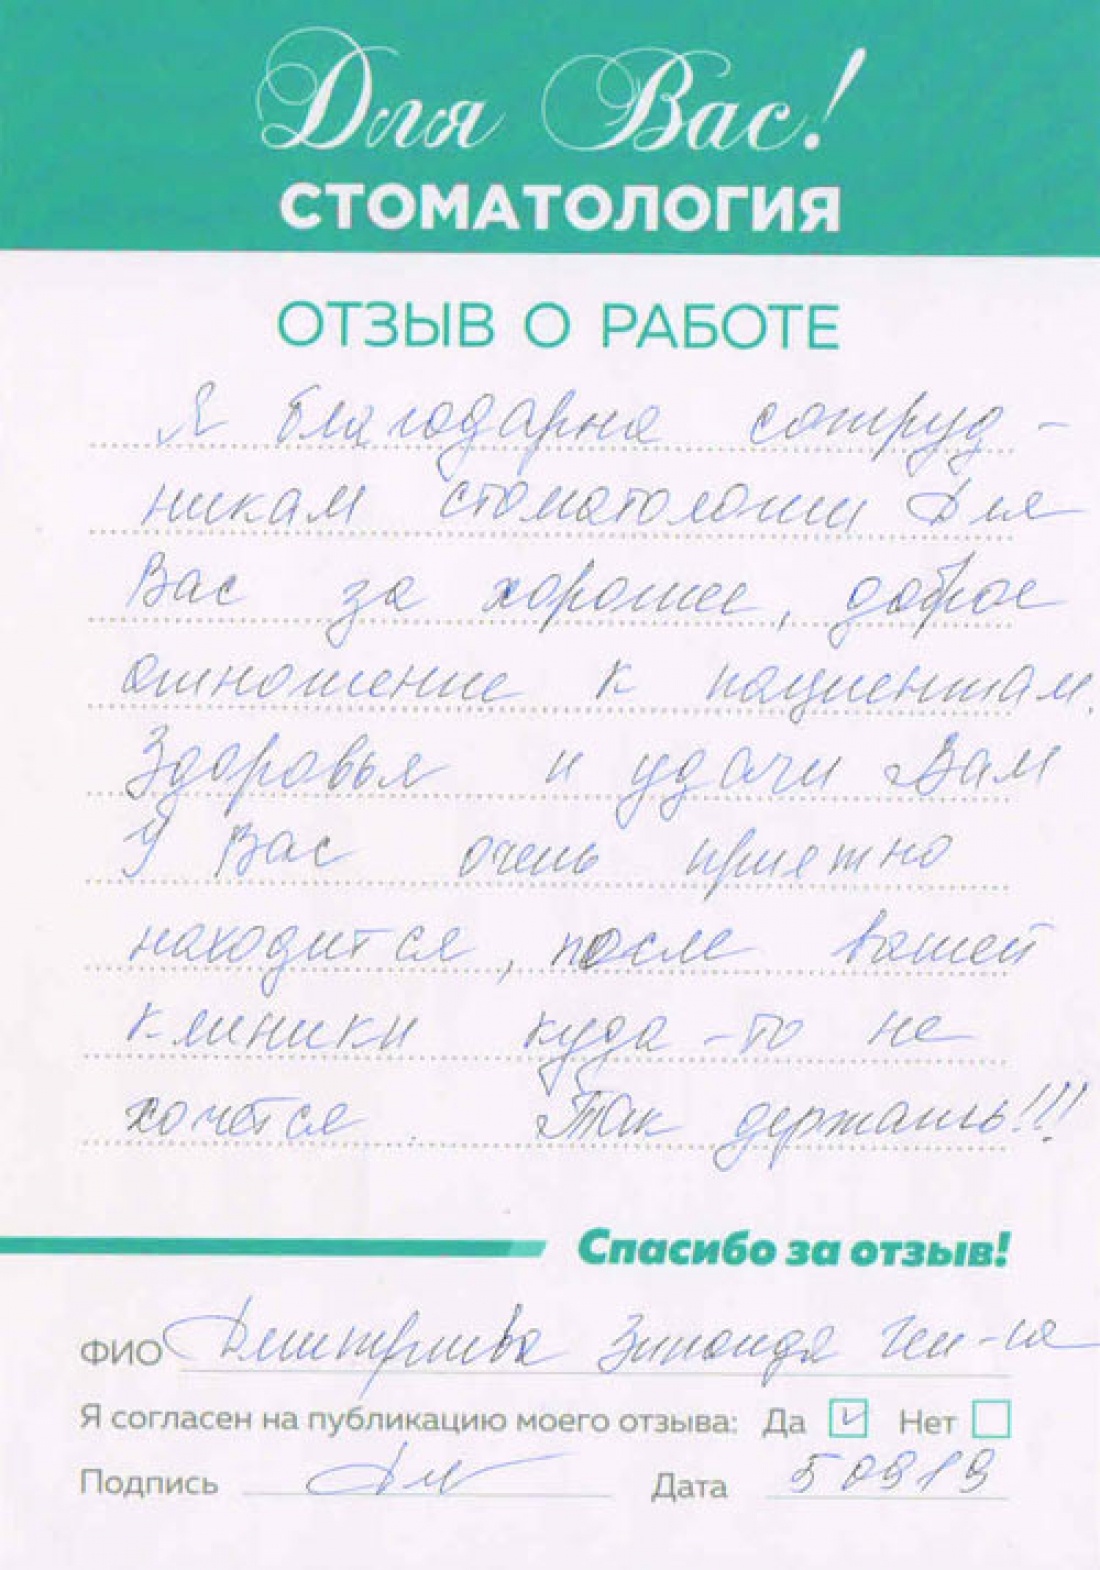 Для Вас!
СТОМАТОЛОГИЯ
ОТЗЫВ О РАБОТЕ
Я благодарна сотруд-
никам стоматологии Для
Вас за хорошее, доброе
отношение к пациентам.
Здоровья и удачи Вам
У Вас очень приятно
находится, после вашей
клиники куда-то не
хочется. Так держать!!!
Спасибо за отзыв!
ФИО Дмитриева Зинаида Ген-на
Я согласен на публикацию моего отзыва: Да Нет
Подпись Дата 50919